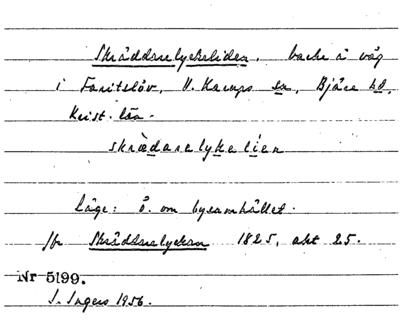 Skräddarelyckeliden, backe å väg
i Faritslöv, V. Karups sn, Bjäre hd,
Krist. län.
skrædarelykelien
Läge: ö. om bysamhället.
Jfr Skräddarelyckan 1825, akt 25.
Nr 5199.
I. Ingers 1956.